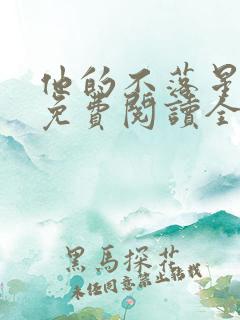 他的不落星
免費閱讀全
黑馬探花
未經同意禁止轉載